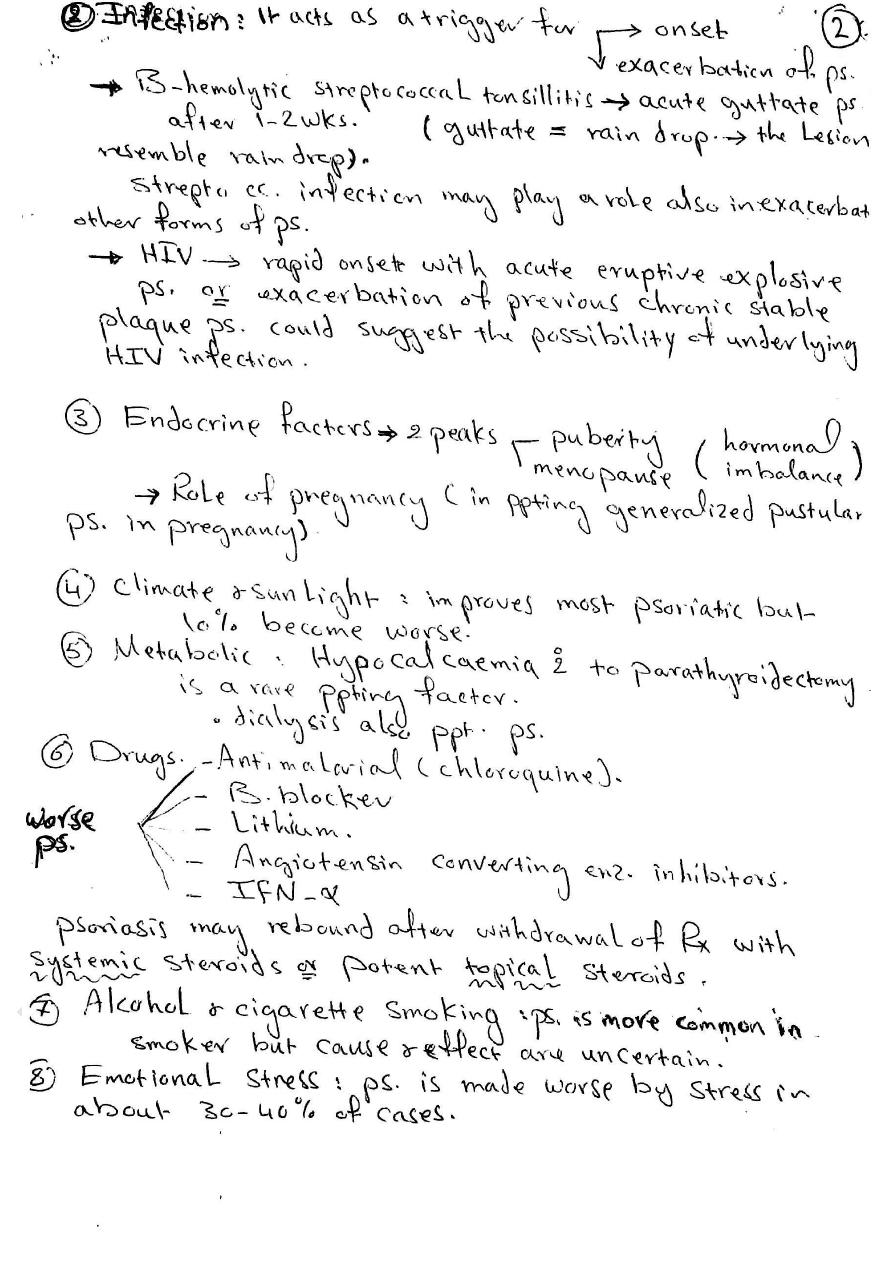 ② Infection: It acts as a trigger for → onset ②
↓ exacerbation of ps.
→ B-hemolytic streptococcal tonsillitis → acute guttate ps
after 1-2 wks. (guttate = rain drop → the Lesion
resemble rain drop).
Strepto cc. infection may play a role also in exacerbat
other forms of ps.
→ HIV → rapid onset with acute eruptive explosive
ps. or exacerbation of previous chronic stable
plaque ps. could suggest the possibility of underlying
HIV infection.
③ Endocrine factors → 2 peaks puberty (hormonal
menopause imbalance)
→ Role of pregnancy (in ppting generalized pustular
ps. in pregnancy)
④ Climate & sun Light : improves most psoriatic but
10% become worse.
⑤ Metabolic : Hypocalcaemia 2° to parathyroidectomy
is a rare ppting factor.
• dialysis also ppt. ps.
⑥ Drugs. - Antimalarial (chloroquine).
- B. blocker
worse - Lithium.
ps.
- Angiotensin converting enz. inhibitors.
- IFN-α
psoriasis may rebound after withdrawal of Rx with
systemic steroids or potent topical steroids.
⑦ Alcohol & cigarette smoking : ps. is more common in
smoker but cause & effect are uncertain.
⑧ Emotional Stress : ps. is made worse by stress in
about 30-40% of cases.